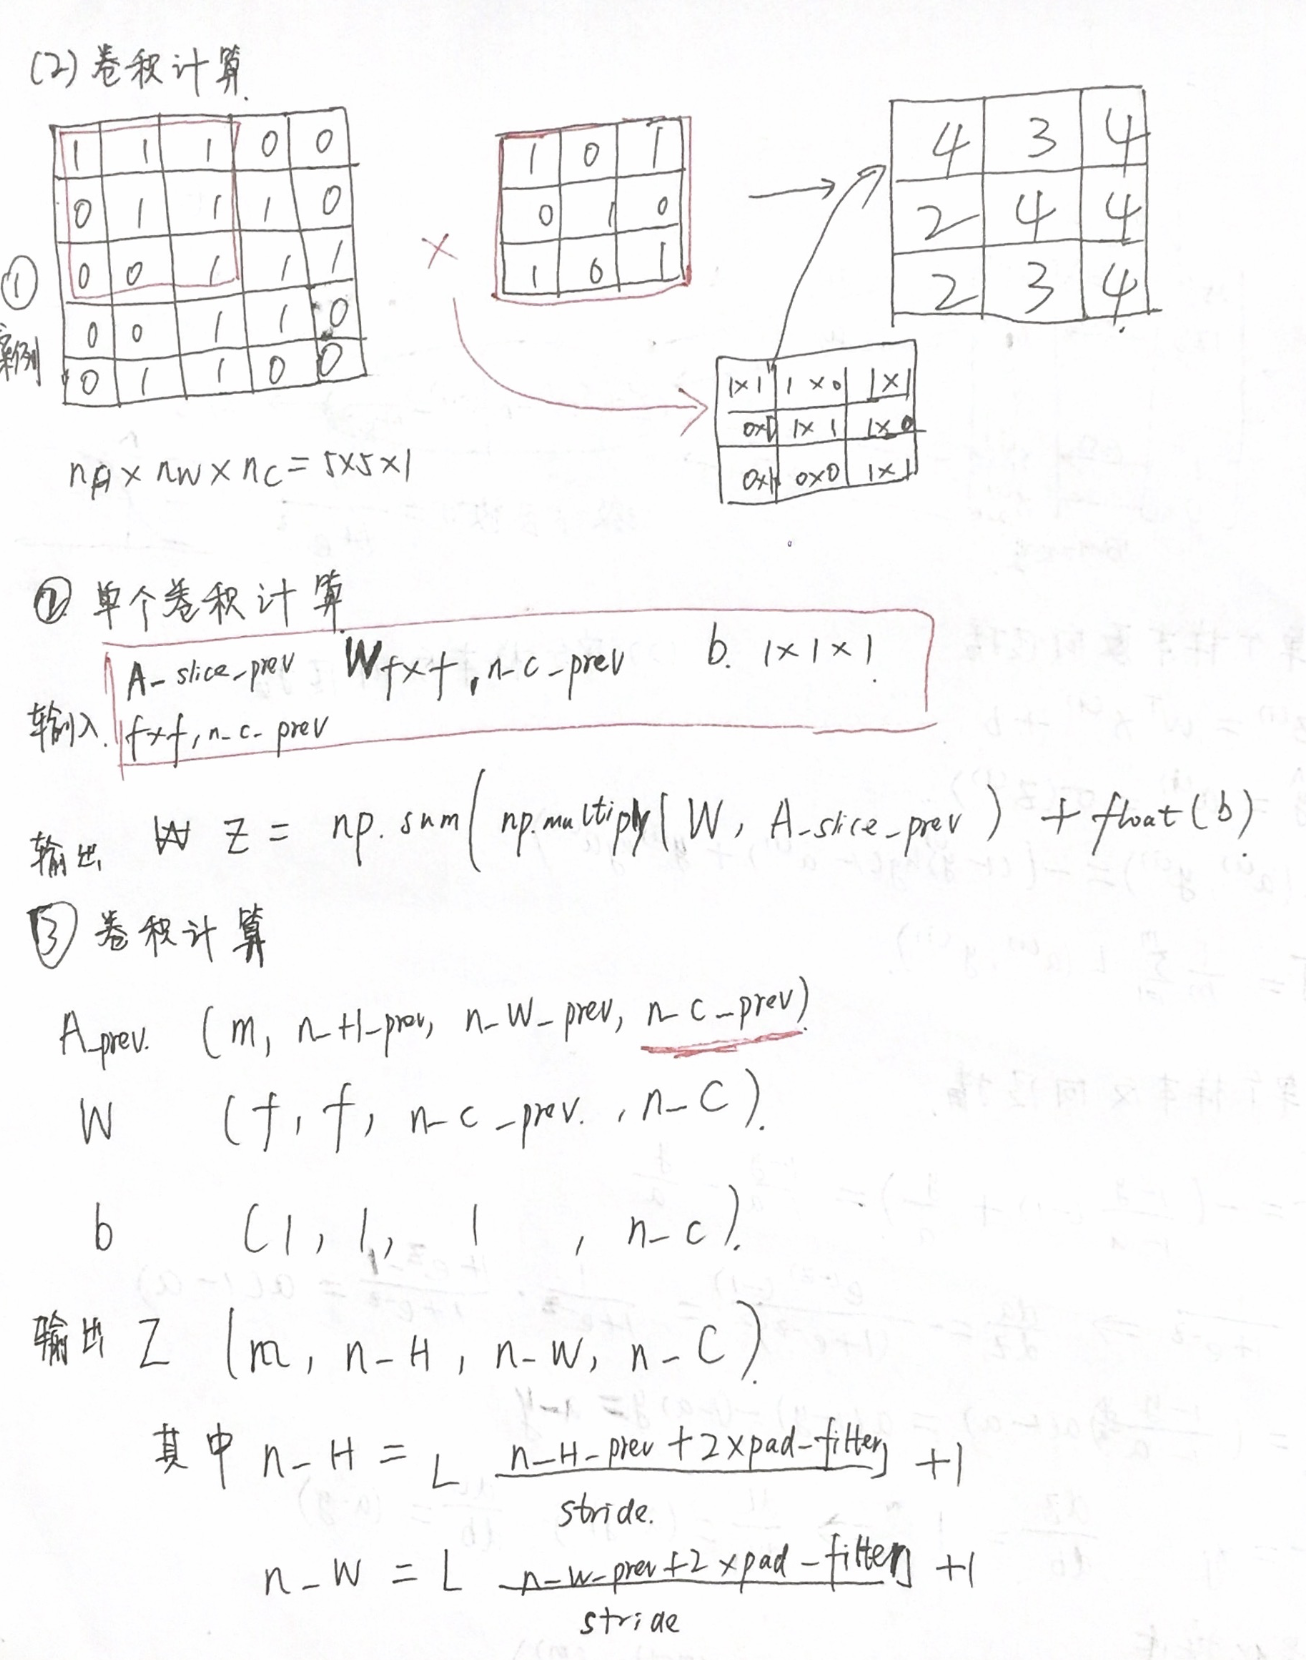 (2) 卷积计算
1 1 1 0 0
0 1 1 1 0
0 0 1 1 1
0 0 1 1 0
0 1 1 0 0
① 案例
×
1 0 1
0 1 0
1 0 1
4 3 4
2 4 4
2 3 4
1×1 1×0 1×1
0×0 1×1 1×0
0×1 0×0 1×1
nH × nW × nC = 5×5×1
② 单个卷积计算
输入 A_slice_prev W f×f, n_c_prev b. 1×1×1
f×f, n_c_prev
输出 Z = np.sum( np.multiply( W, A_slice_prev ) + float(b)
③ 卷积计算
A_prev. (m, n_H_prev, n_W_prev, n_C_prev)
W (f, f, n_c_prev. , n_C).
b (1, 1, 1 , n_c).
输出 Z (m, n_H, n_W, n_C).
其中 n_H = ⌊ n_H_prev + 2×pad-filter⌋ +1
stride.
n_W = ⌊ n_W_prev+2×pad-filter⌋ +1
stride